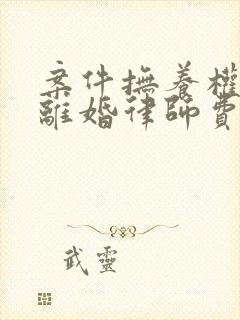 案件撫養權
離婚律師費
武靈